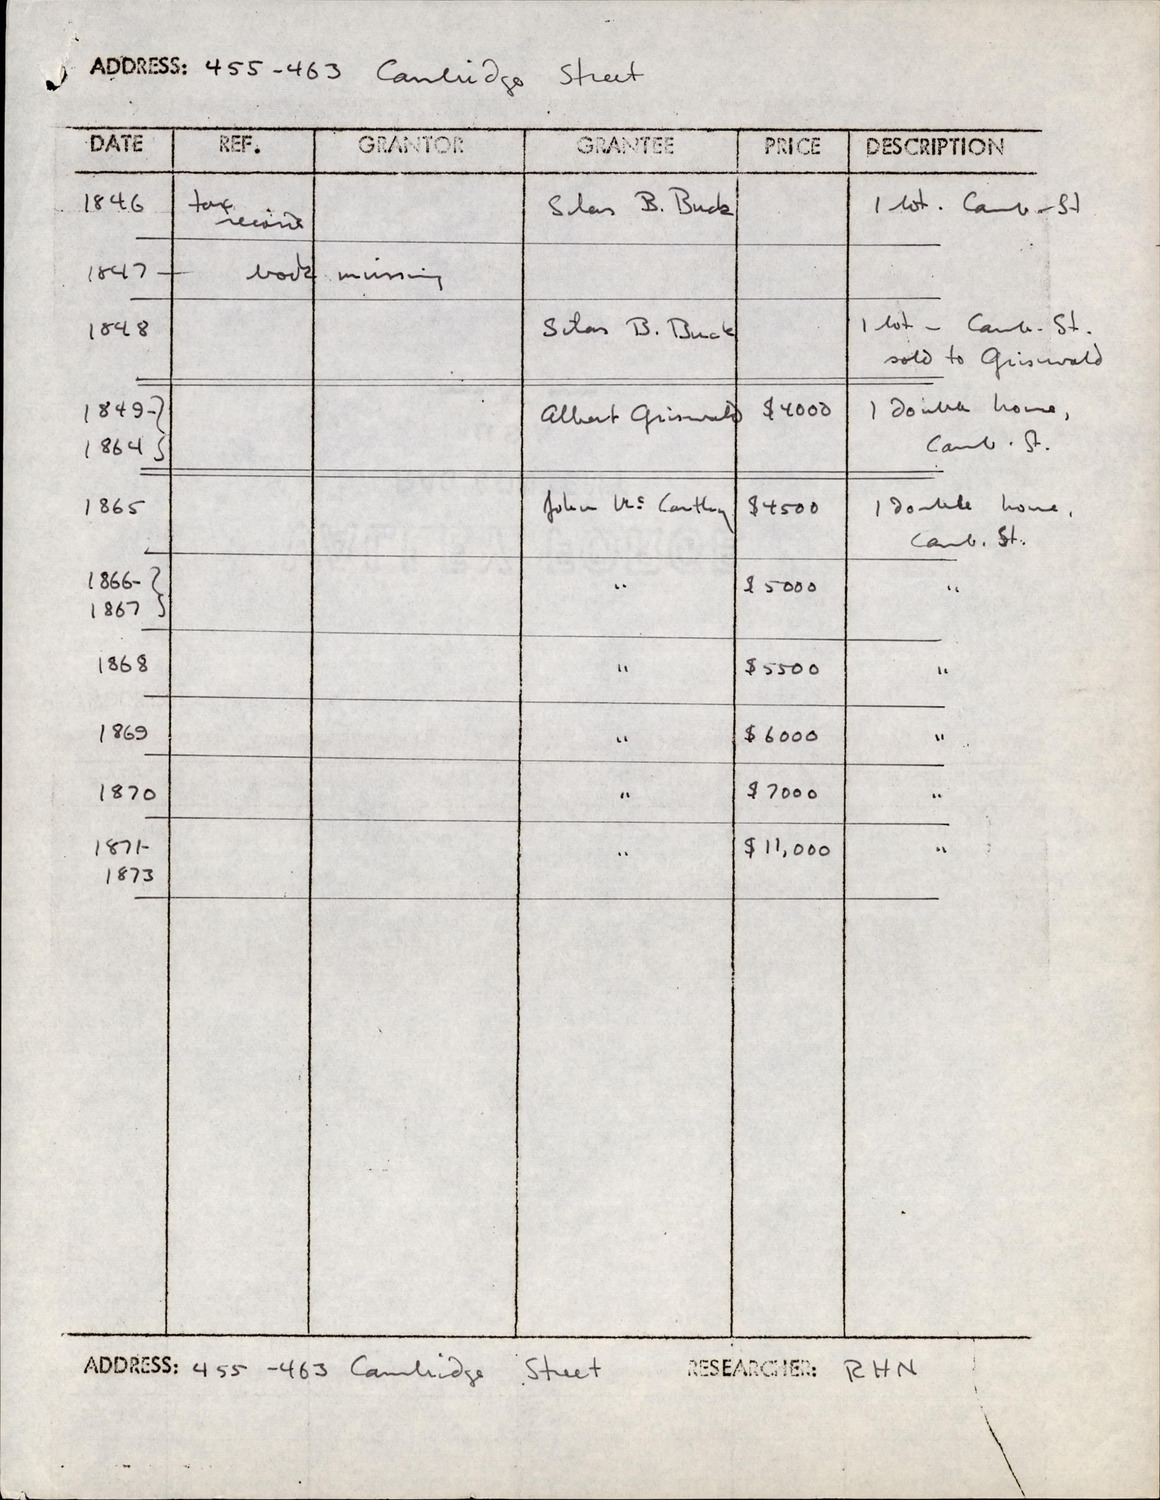 ADDRESS: 455-463 Cambridge Street
DATE REF. GRANTOR GRANTEE PRICE DESCRIPTION
1846 tax Silas B. Buck 1 lot. Camb-St
records
1847 — book missing
1848 Silas B. Buck 1 lot - Camb. St.
sold to Griswald
1849-} Albert Griswald $4000 1 Double house,
1864 } Camb. St.
1865 John Mc Carthy $4500 1 Double house,
Camb. St.
1866- } " $5000 "
1867 }
1868 " $5500 "
1869 " $6000 "
1870 " $7000 "
1871- " $11,000 "
1873
ADDRESS: 455-463 Cambridge Street RESEARCHER: RHN